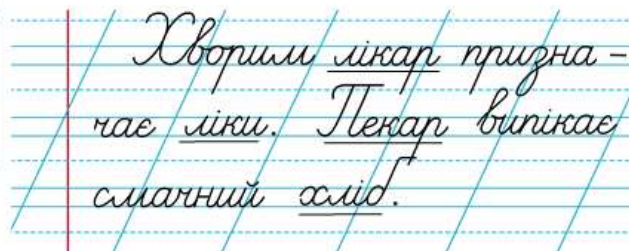 Хворим лікар призна-
чає ліки. Пекар випікає
смачний хліб.